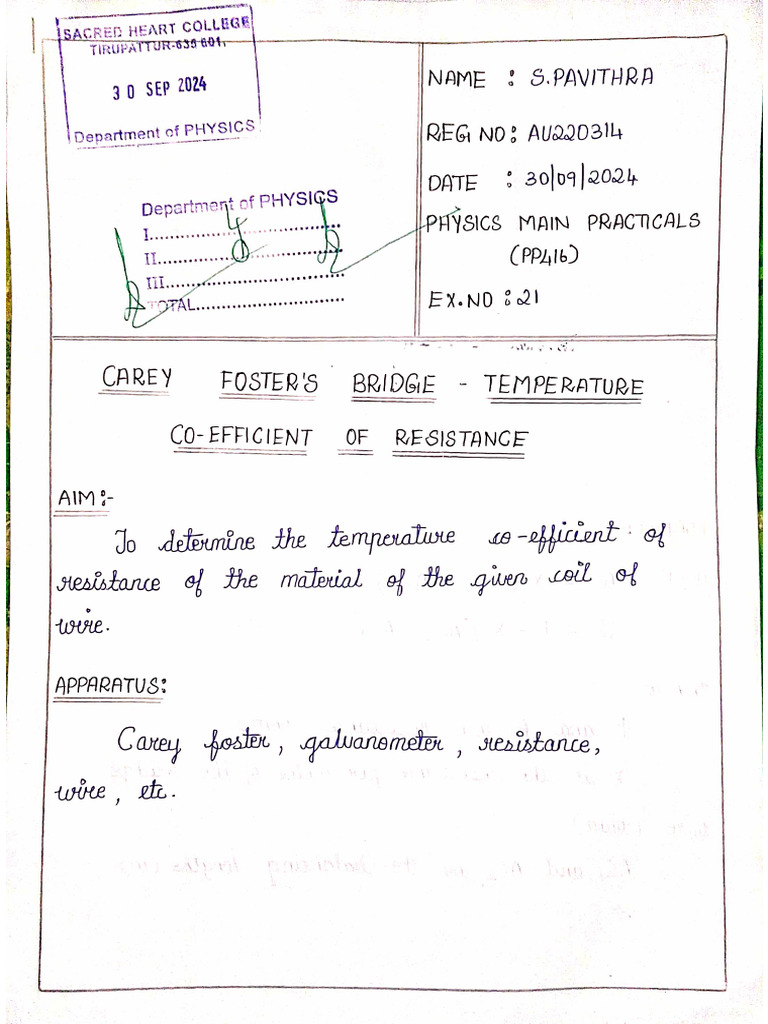 SACRED HEART COLLEGE
TIRUPATTUR-635 601.
30 SEP 2024
Department of PHYSICS
Department of PHYSICS
I..............................
II..............................
III..............................
TOTAL..............................
4
NAME : S.PAVITHRA
REG NO: AU220314
DATE : 30/09/2024
PHYSICS MAIN PRACTICALS
(PP416)
EX.NO : 21
CAREY FOSTER'S BRIDGE - TEMPERATURE
CO-EFFICIENT OF RESISTANCE
AIM:-
To determine the temperature co-efficient of
resistance of the material of the given coil of
wire.
APPARATUS:
Carey foster, galvanometer, resistance,
wire, etc.